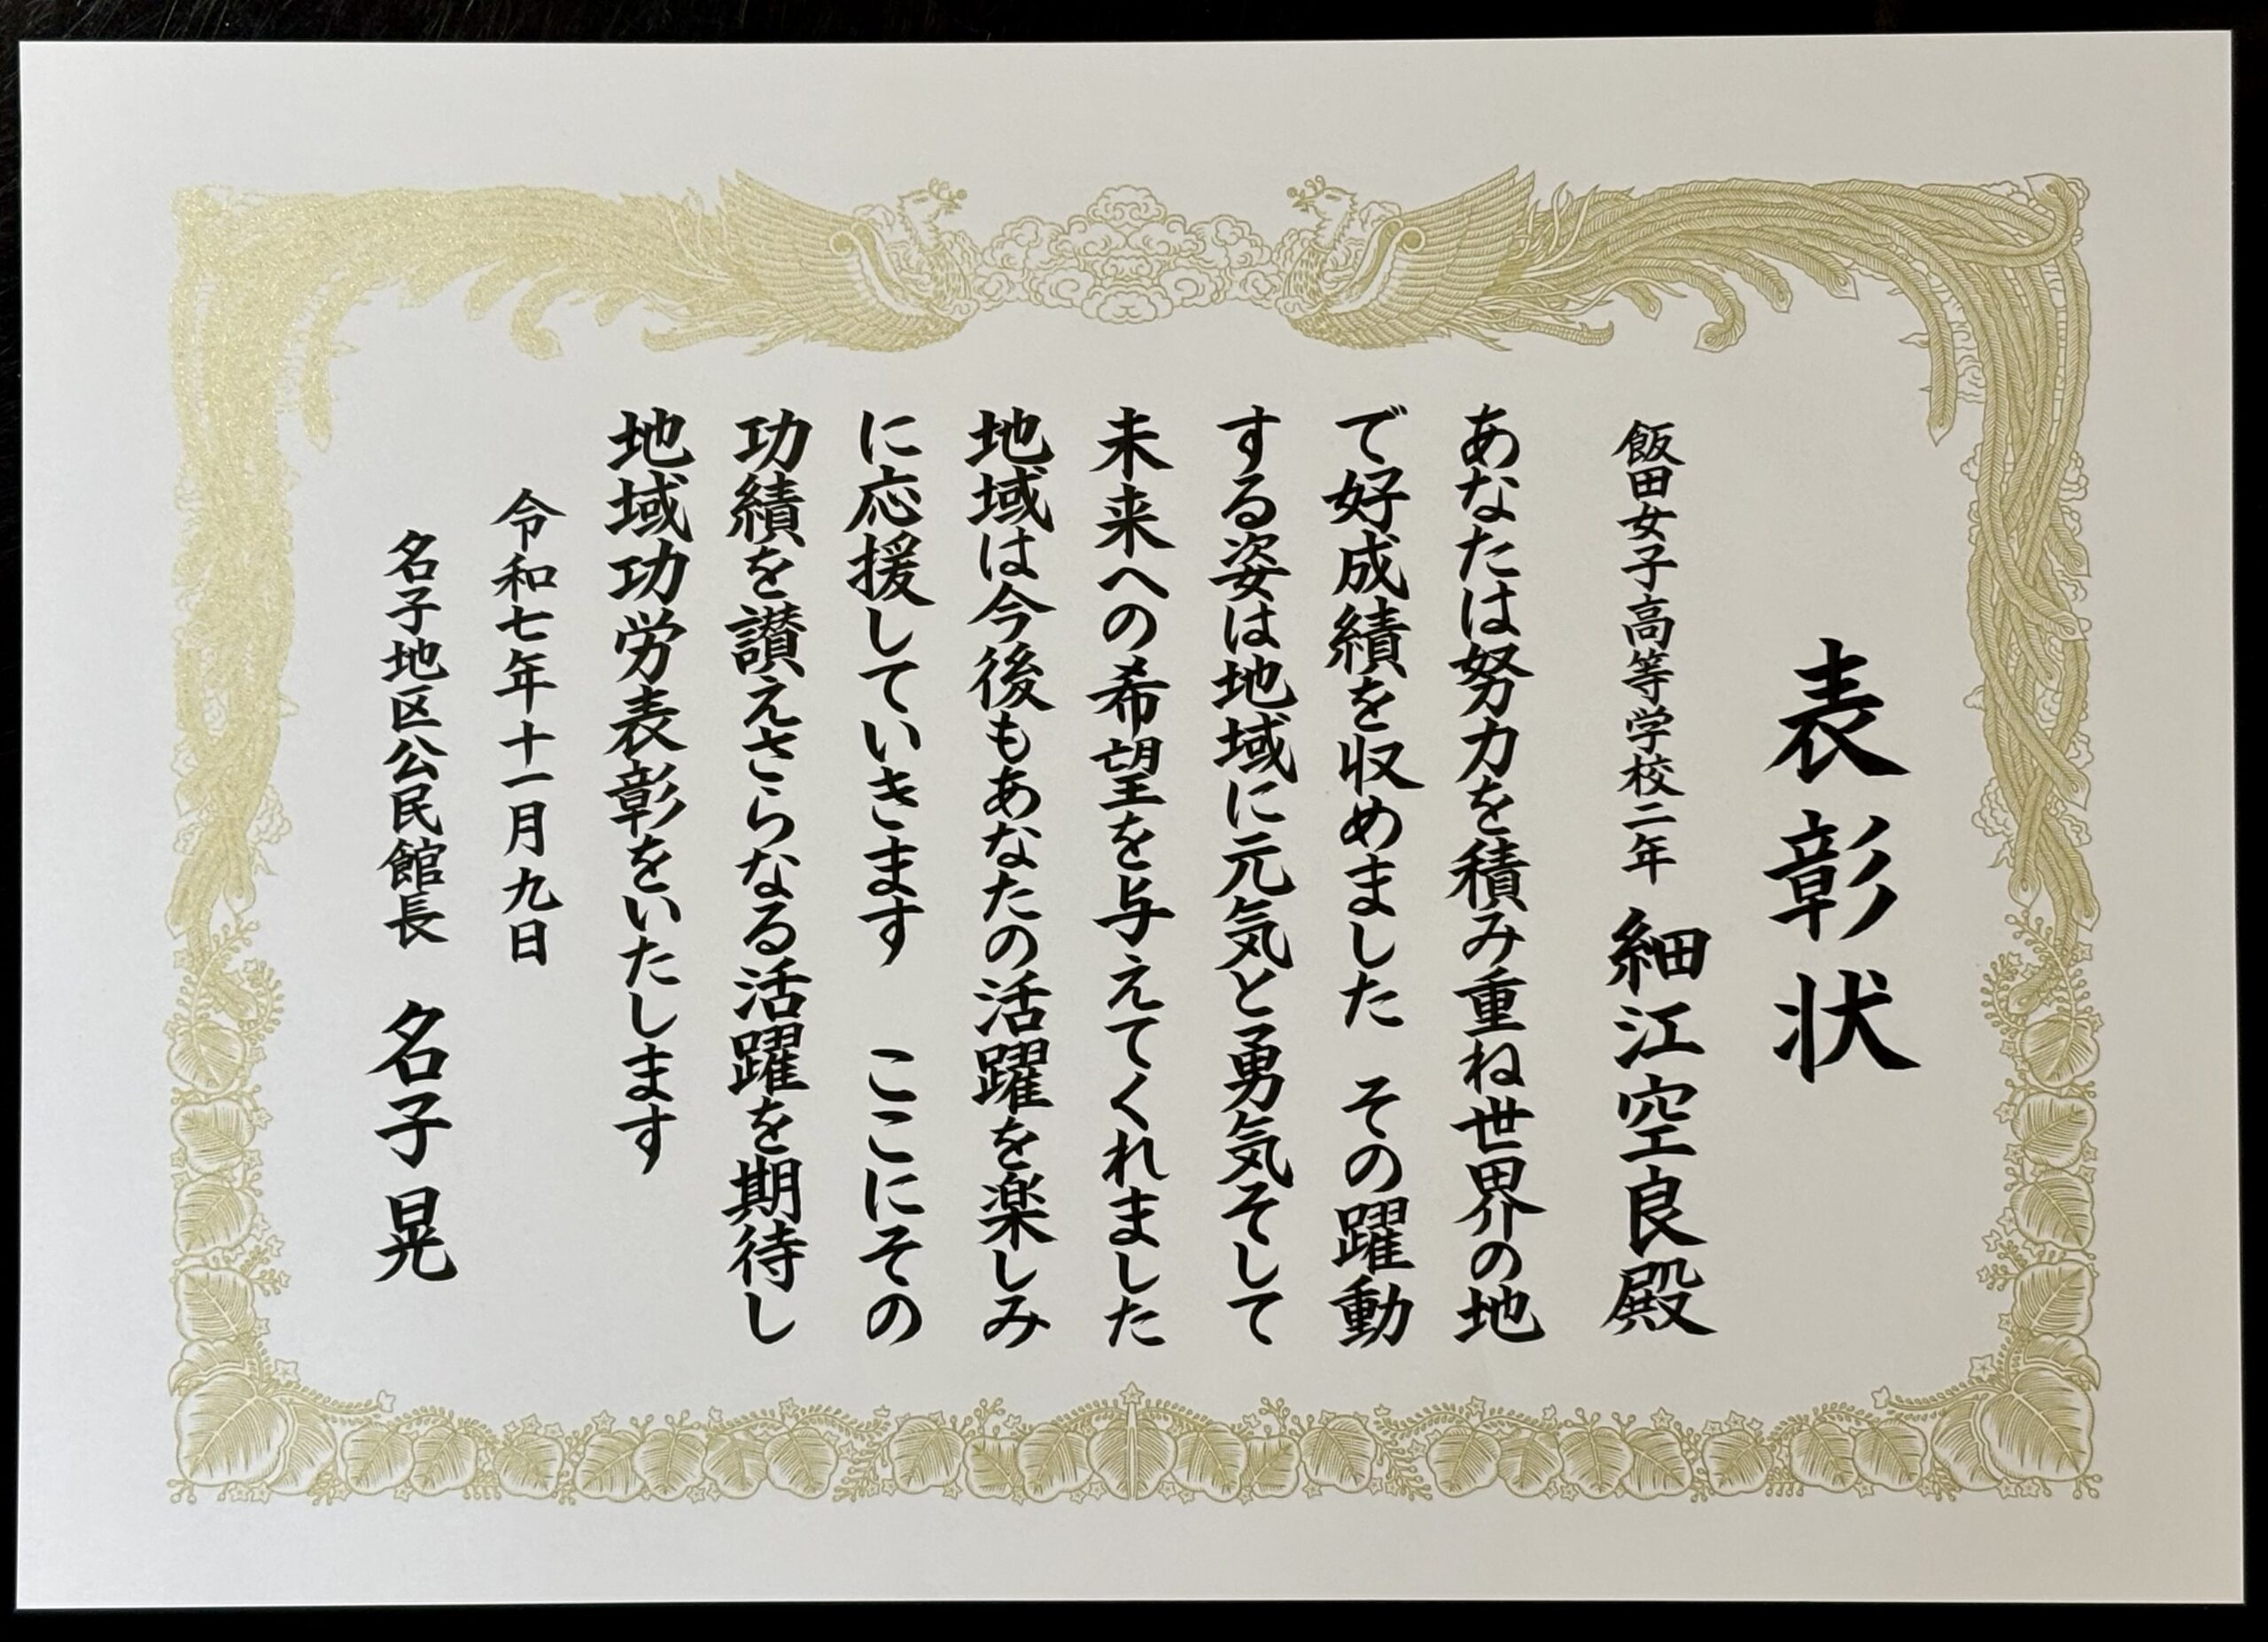 表彰状
飯田女子高等学校二年 細江空良殿
あなたは努力を積み重ね世界の地
で好成績を収めました その躍動
する姿は地域に元気と勇気そして
未来への希望を与えてくれました
地域は今後もあなたの活躍を楽しみ
に応援していきます ここにその
功績を讃えさらなる活躍を期待し
地域功労表彰をいたします
令和七年十一月九日
名子地区公民館長 名子晃